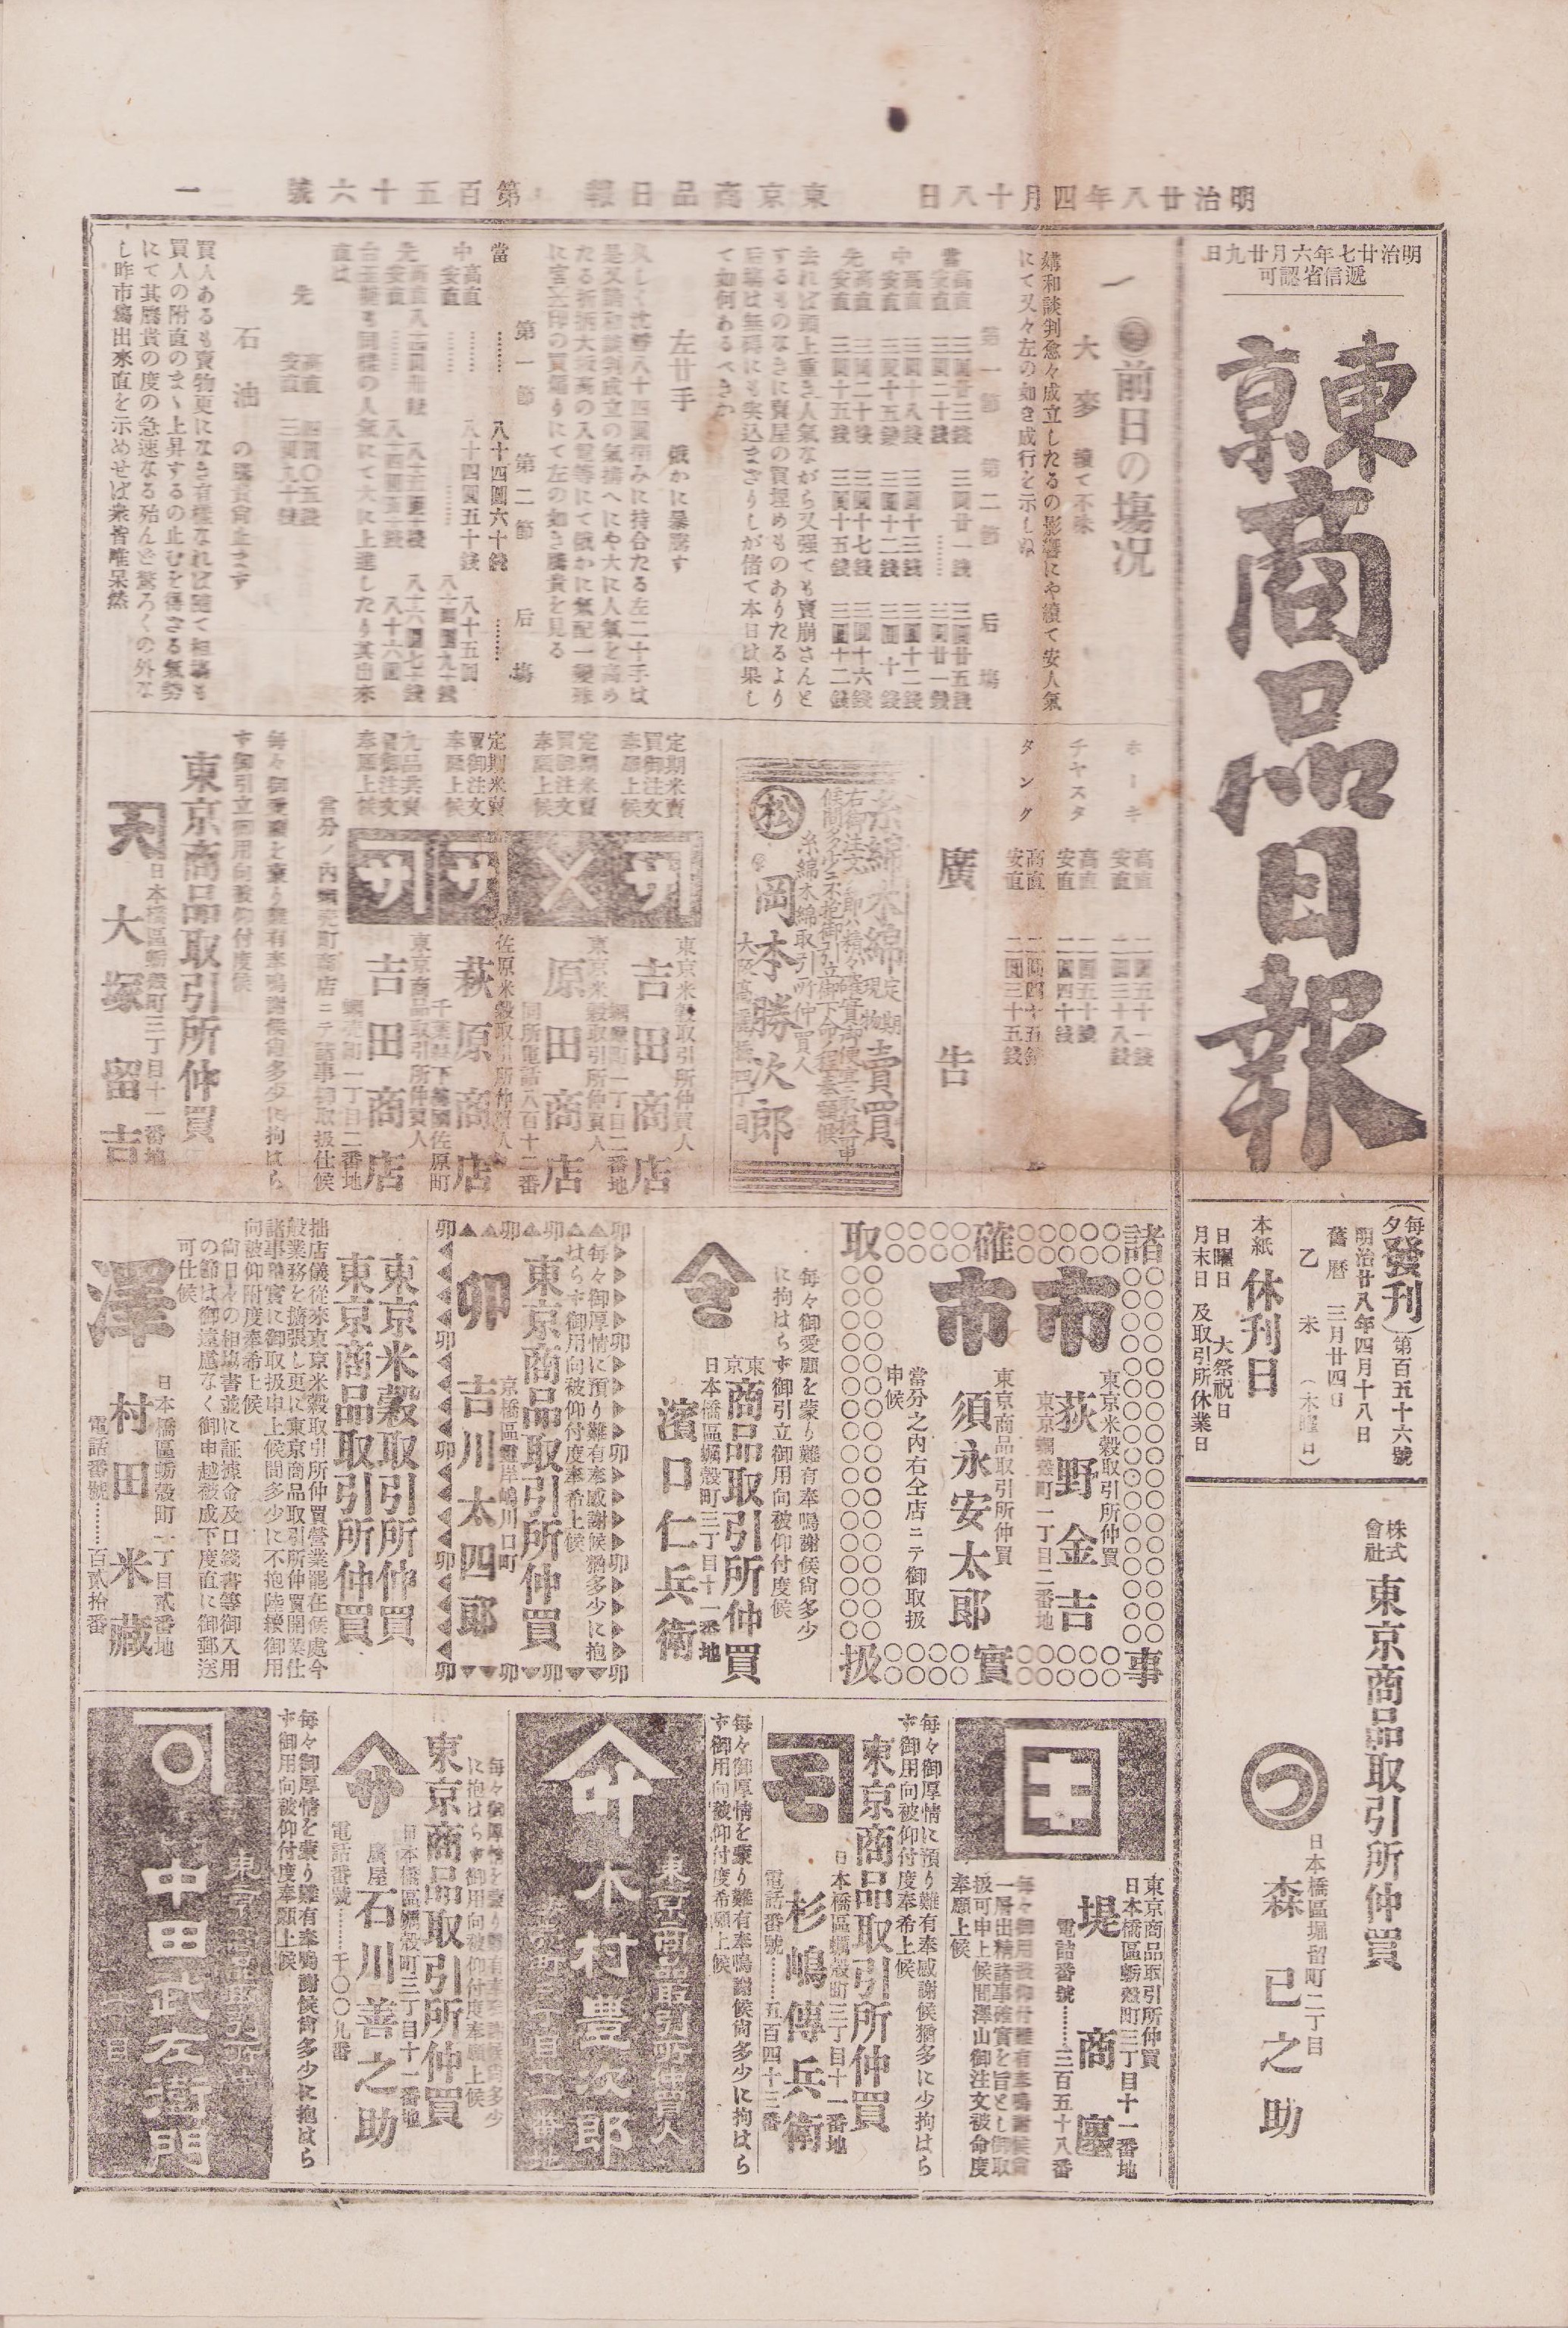 明治廿八年四月十八日
東京商品日報
第百五十六號
一
明治廿七年六月廿九日
遞信省認可
東京商品日報
(毎夕)發刊(第百五十六號
明治廿八年四月十八日
舊暦 三月廿四日
乙未 (木曜日)
本紙休刊日
日曜日 大祭祝日
月末日 及取引所休業日
株式會社 東京商品取引所仲買
日本橋區堀留町二丁目
つ 森巳之助
前日の塲况
大麥 續て不味
媾和談判愈々成立したるの影響にや續て安人氣
にて又々左の如き成行を示しぬ
第一節 第二節 后塲
當 高直 三圓廿三錢 三圓廿一錢 三圓廿五錢
安直 三圓二十錢 …… 三圓廿一錢
中 高直 三圓十八錢 三圓十三錢 三圓十二錢
安直 三圓十五錢 三圓十二錢 三圓十錢
先 高直 三圓二十錢 三圓十七錢 三圓十六錢
安直 三圓十五錢 三圓十五錢 三圓十二錢
去れば頭上重き人氣ながら又强ても賣崩さんと
するものなきに賣屋の買埋めものありたるより
后塲は無碍にも突込まざりしが偖て本日は果し
て如何あるべきか
左廿手 俄かに暴騰す
第一節 第二節 后塲
當 …… 八十四圓六十錢 ……
中 高直 …… 八十四圓五十錢 八十五圓
安直 …… …… 八十四圓九十錢
直は
先 高直 四圓〇五錢
安直 三圓九十錢
石油 の騰貴尙止まず
買人あるも賣物更になき有樣なれば隨て相塲も
買人の附直のまゝ上昇するの止むを得ざる氣勢
にて其騰貴の度の急速なる殆んど驚ろくの外な
し昨市塲出來直を示めせば衆皆唯呆然
ホーキ 高直 二圓五十一錢
安直 二圓三十八錢
チヤスタ 高直 二圓五十錢
安直 二圓四十錢
タンク 高直 二圓四十五錢
安直 二圓三十五錢
廣告
糸綿木綿 定期現物 賣買
糸綿木綿取引所仲買人
松 岡本勝次郎
大阪高麗橋四丁目
定期米賣
買御注文
奉願上候
東京米穀取引所仲買人
蠣殻町一丁目二番地
吉田商店
定期米賣
買御注文
奉願上候
東京米穀取引所仲買人
同所電話八百十二番
原田商店
定期米賣
買御注文
奉願上候
佐原米穀取引所仲買人
千葉縣下總國佐原町
萩原商店
奉願上候
東京商品取引所仲買人
蠣殻町一丁目二番地
吉田商店
當分ノ內蠣殻町商店ニテ諸事御取扱仕候
毎々御愛顧を蒙り難有奉鳴謝候尙多少に拘はら
す御引立御用向被仰付度候
東京商品取引所仲買
日本橋區蠣殻町三丁目十一番地
大塚留吉
諸事確實取扱
東京米穀取引所仲買
東京蠣殻町一丁目二番地
市 荻野金吉
東京商品取引所仲買
市 須永安太郎
當分之內右仝店ニテ御取扱
申候
毎々御愛顧を蒙り難有奉鳴謝候尙多少
に拘はらす御引立御用向被仰付度候
東京商品取引所仲買
日本橋區蠣殻町三丁目十一番地
濱口仁兵衛
毎々御厚情に預り難有奉感謝候猶多少に抱
はらす御用向被仰付度奉希上候
東京商品取引所仲買
京橋區靈岸嶋川口町
卯 吉川太四郎
東京米穀取引所仲買
東京商品取引所仲買
拙店儀從來東京米穀取引所仲買營業罷在候處今
般業務を擴張し更に東京商品取引所仲買開業仕
諸事確實に御取扱申上候間多少に不抱陸續御用
向被仰附度奉希上候
尙日々の相塲書並に証據金及口錢書等御入用
の節は御遠慮なく御申越被成下度直に御郵送
可仕候
日本橋區蠣殻町一丁目貳番地
澤 村田米藏
電話番號……百貳拾番
東京商品取引所仲買
日本橋區蠣殻町三丁目十一番地
堤商店
電話番號……三百五十八番
毎々御用被仰付難有奉鳴謝候尙
一層出精諸事確實を旨とし御取
扱可申上候間澤山御注文被命度
奉願上候
毎々御厚情に預り難有奉感謝候猶多に少拘はら
す御用向被仰付度奉希上候
東京商品取引所仲買
日本橋區蠣殻町三丁目十一番地
杉嶋傳兵衛
電話番號……五百四十三番
毎々御厚情を蒙り難有奉鳴謝候尙多少に拘はら
す御用向被仰付度希願上候
東京商品取引所仲買人
木村豊次郎
毎々御厚情を蒙り難有奉鳴謝候尙多少
に抱はらす御用向被仰付度奉願上候
東京商品取引所仲買
日本橋區蠣殻町三丁目十一番地
廣屋 石川善之助
電話番號……千〇〇九番
毎々御厚情を蒙り難有奉鳴謝候尙多少に抱はら
す御用向被仰付度奉願上候
中田武左衛門